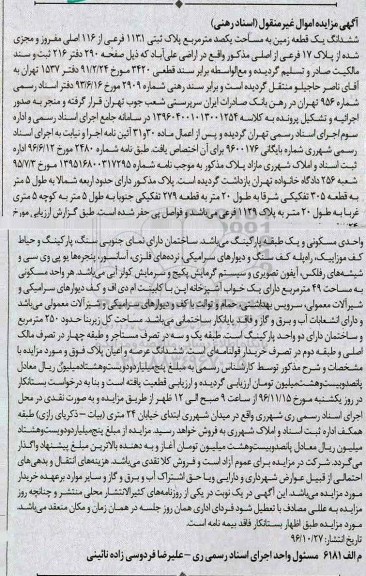 آگهی مزایده اموال غیرمنقول (اسناد رهنی)
ششدانگ یک قطعه زمین به مساحت یکصد مترمربع پلاک ثبتی ۱۱۳۹۱ فرعی از ۱۱۶ اصلی مفروز و مجزی
شده از پلاک ۱۷ فرعی از اصلی مذکور واقع در اراضی علی‌آباد که ذیل صفحه ۲۹۰ دفتر ۲۱۶ ثبت و سند
مالکیت صادر و تسلیم گردیده و مع‌الواسطه برابر سند قطعی ۳۴۲۰ مورخ ۹۱/۲/۲۴ دفتر ۱۵۳۷ تهران به
آقای ناصر حاجیلو منتقل گردیده است و برابر سند رهنی شماره ۲۹۰۹ مورخ ۹۳/۶/۱۶ دفتر اسناد رسمی
شماره ۹۵۶ تهران در رهن بانک صادرات ایران سرپرستی شعب جوب تهران قرار گرفته و منجر به صدور
اجرائیه و تشکیل پرونده به کلاسه ۱۳۹۶۰۴۰۰۱۰۱۳۰۰۱۲۵۴ در سامانه جامع اجرای اسناد رسمی و اداره
سوم اجرای اسناد رسمی تهران گردیده و پس از اعمال ماده ۳۰و۳۱ آئین نامه اجرا و نیابت به اجرای اسناد
رسمی شهرری شماره بایگانی ۹۶۰۰۱۷۶ برای آن اختصاص یافت. طبق نامه شماره ۲۴۸۰ مورخ ۹۶/۶/۱۲ اداره
ثبت اسناد و املاک شهرری مازاد پلاک مذکور به موجب نامه شماره ۱۳۹۵۱۶۸۰۰۳۱۷۲۹۵ مورخ ۹۵/۷/۳
شعبه ۲۵۶ دادگاه خانواده تهران بازداشت گردیده است. پلاک مذکور دارای حدود اربعه شمالا به طول ۵ متر
به قطعه ۳۰۵ تفکیکی شرقا به طول ۲۰ متر به قطعه ۲۷۹ تفکیکی جنوبا به طول ۵ متر به کوچه ۵ متری
غربا به طول ۲۰ متر به پلاک ۱۱۲۹ فرعی می‌باشد و فواصل بی حفر شده است. طبق گزارش ارزیابی مورخ
واحدی مسکونی و یک طبقه پارکینگ می‌باشد. ساختمان دارای نمای جنوبی سنگ، پارکینگ و حیاط
کف موزاییک، راه‌پله کف سنگ و دیوارهای سرامیکی، نرده‌های فلزی، آسانسور، پنجره‌ها یو پی وی سی و
شیشه‌های رفلکس، آیفون تصویری و سیستم گرمایش پکیج و سرمایش کولر آبی می‌باشد. هر واحد مسکونی
به مساحت ۴۹ مترمربع دارای یک خواب آشپزخانه اپن با کابینت ام دی اف و کف دیوارهای سرامیکی و
شیرآلات معمولی، سرویس بهداشتی، حمام و توالت با کف و دیوارهای سرامیکی و شیرآلات معمولی می‌باشد
و دارای انشعابات آب و برق و گاز و فاقد پایانکار ساختمانی می‌باشد. مساحت کل زیربنا حدود ۲۵۰ مترمربع
و ساختمان دارای دو واحد پارکینگ است. طبقه یک و سه در تصرف مستاجر و طبقه چهار در تصرف مالک
اصلی و طبقه دوم در تصرف خریدار قولنامه‌ای است. ششدانگ عرصه و اعیان پلاک فوق و مورد مزایده با
مشخصات و شرح مذکور توسط کارشناس رسمی به مبلغ پنج‌میلیاردودویست‌وهشتادمیلیون ریال معادل
پانصدوبیست‌وهشت‌میلیون تومان ارزیابی گردیده و ارزیابی قطعیت یافته است و بنا به درخواست بستانکار
در روز یکشنبه مورخ ۹۶/۱۱/۱۵ از ساعت ۹ صبح الی ۱۲ ظهر از طریق مزایده و به صورت نقدی در محل
اجرای اسناد رسمی ری شهرری واقع در میدان شهرری ابتدای خیابان ۲۴ متری (بیات – ذکریای رازی) طبقه
همکف اداره ثبت اسناد و املاک شهرری به فروش خواهد رسید. مزایده از مبلغ پنج‌میلیاردودویست‌وهشتاد
میلیون ریال معادل پانصدوبیست‌وهشت میلیون تومان آغاز و به دهنده بالاترین مبلغ پیشنهاد واگذار
می‌گردد. شرکت در مزایده برای عموم آزاد است و فروش کلا نقدی می‌باشد. هزینه‌های انتقال و بدهی‌های
احتمالی از قبیل عوارض شهرداری و دارایی و یا حق اشتراک آب و برق و گاز و سایر موارد برعهده خریدار
مورد مزایده می‌باشد. این آگهی در یک نوبت در یکی از روزنامه‌های کثیرالانتشار محلی منتشر و چنانچه روز
مزایده به عللی مصادف با تعطیل شود فردای اداری همان روز جلسه در همان زمان و مکان منعقد می‌باشد.
مورد مزایده طبق اظهار بستانکار فاقد بیمه نامه است.
تاریخ انتشار: ۹۶/۱۰/۲۷
م الف ۶۱۸۱ مسئول واحد اجرای اسناد رسمی ری – علیرضا فردوسی زاده نائینی